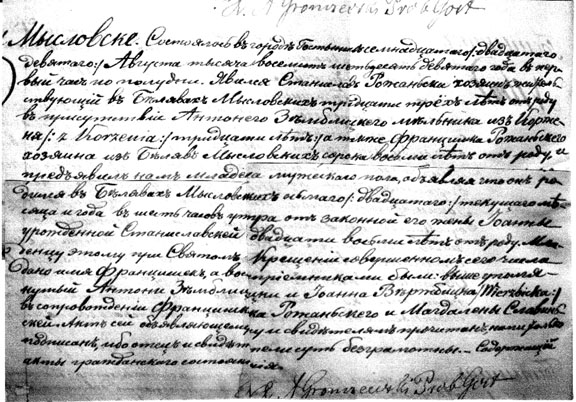 Мысловске. Состоялось въ городѣ Гостынинѣ семнадцатаго /: двадцатаго
девятаго :/ Августа тысяча восемьсотъ шестьдесятъ девятаго года въ пер
вый часъ по полудни. Явился Станиславъ Рожаньски хозяинъ жительс
ствующій въ Бѣлявахъ Мысловскихъ тридцати трёхъ лѣтъ отъ роду
въ присутствіи Антонего Зѣмблицкего мѣльника изъ Корже
ня /: z Korzenia :/ тридцати лѣтъ, а также Францишка Рожаньскего
хозяина изъ Бѣлявъ Мысловскихъ сорока восьми лѣтъ отъ роду, и
предъявилъ намъ младенца мужескаго пола, объявляя что онъ ро
дился въ Бѣлявахъ Мысловскихъ /: двадцатаго :/ текущаго мѣ
сяца и года въ шесть часовъ утра отъ законной его жены Іоанны
урожденной Станиславской двадцати восьми лѣтъ отъ роду. Мла
денцу этому при Святомъ Крещеніи совершенномъ сего числа
дано имя Францишекъ, а воспріемниками были: выше упомя
нутый Антони Зѣмблицки и Іоанна
въ сопровожденіи Францишка Рожаньскего и Магдалены
ской. Актъ сей объявляющему и свидѣтелямъ прочитанъ, нами только
подписанъ, ибо отецъ и свидѣтели суть безграмотны... Содержащій
акты гражданскаго состоянія.